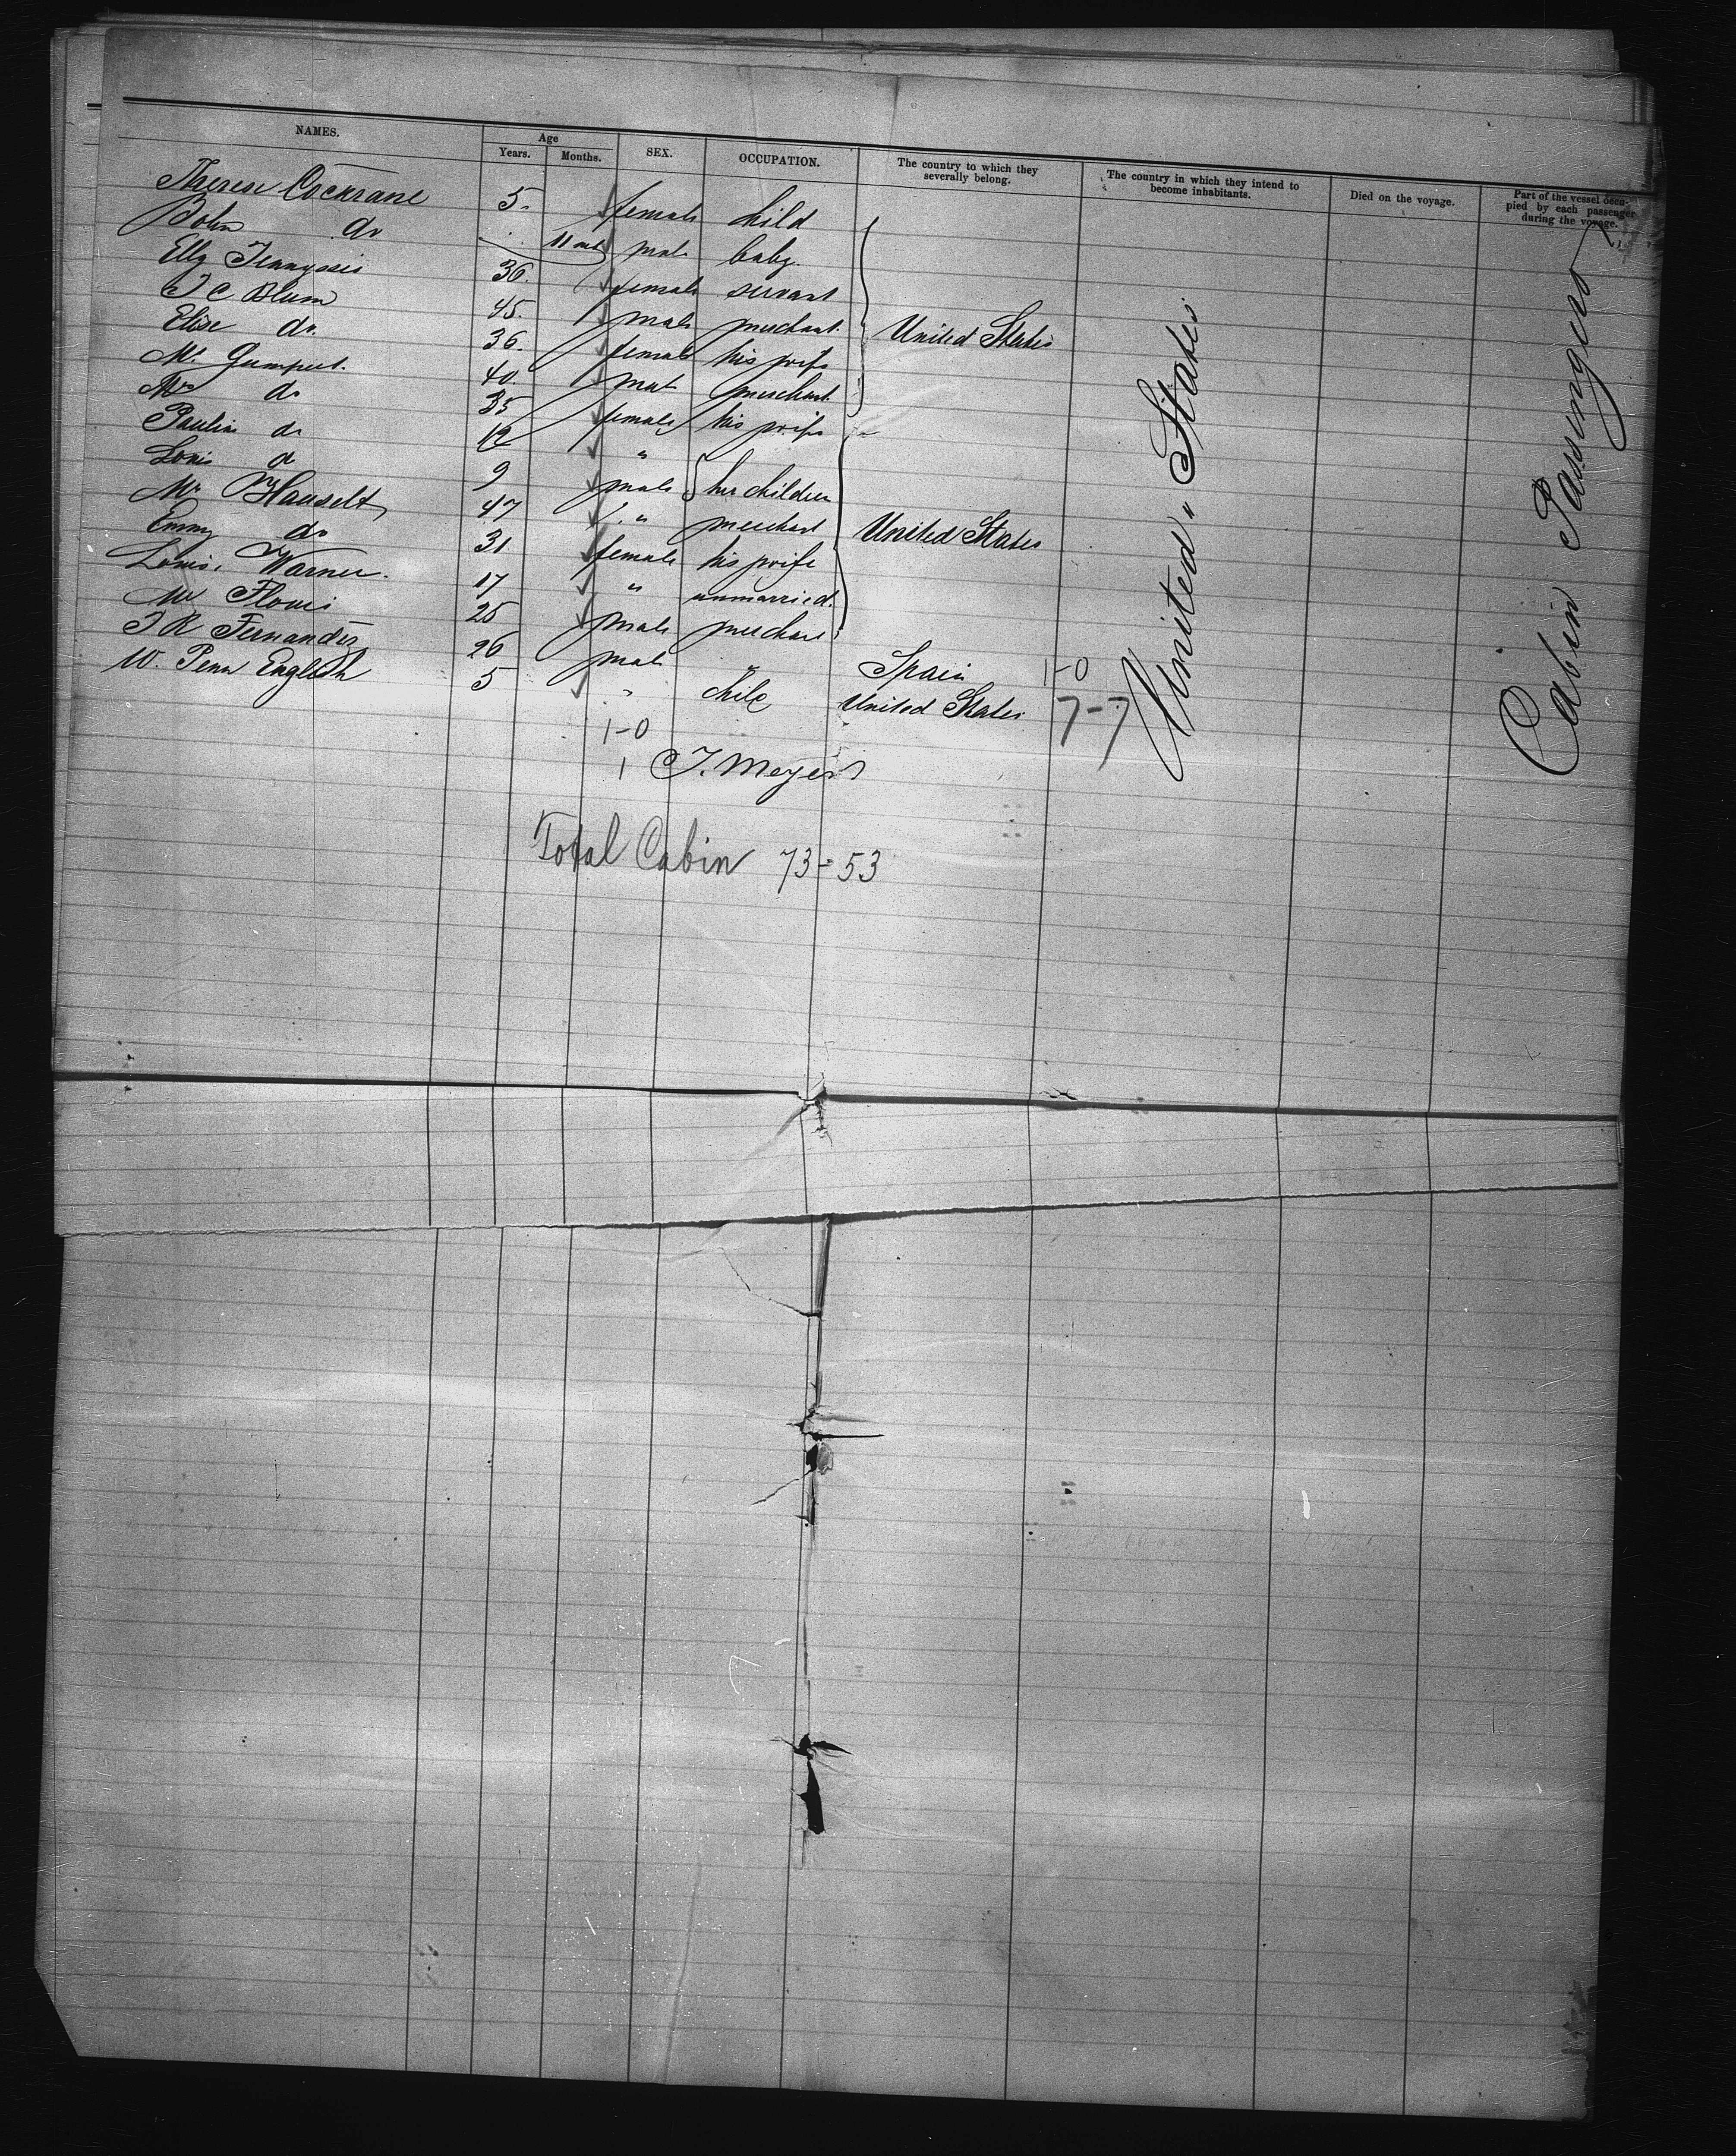 NAMES. Age Years. Months. SEX. OCCUPATION. The country to which they severally belong. The country in which they intend to become inhabitants. Died on the voyage. Part of the vessel occupied by each passenger during the voyage.
Therese Cockrane 5. female child
John do 11 mts male baby
Elly 36. female servant
J C Blum 45. male merchant
Elise do. 36. female his wife United States
Mr Gumpert. 40. male merchant
Mrs do 35 female his wife
Pauline do 12 "
Louis do 9 male her children
Mr Hauselt 47 " merchant United States
Emmy do 31 female his wife
Louis. Warner. 17 " unmarried.
Mr 25 male merchant
J R Fernandez 26 male " Spain 1-0
W. Penn English 5 " child United States 7-7
United States
Cabin Passengers
1-0
1 J. Meyer
Total Cabin 73=53